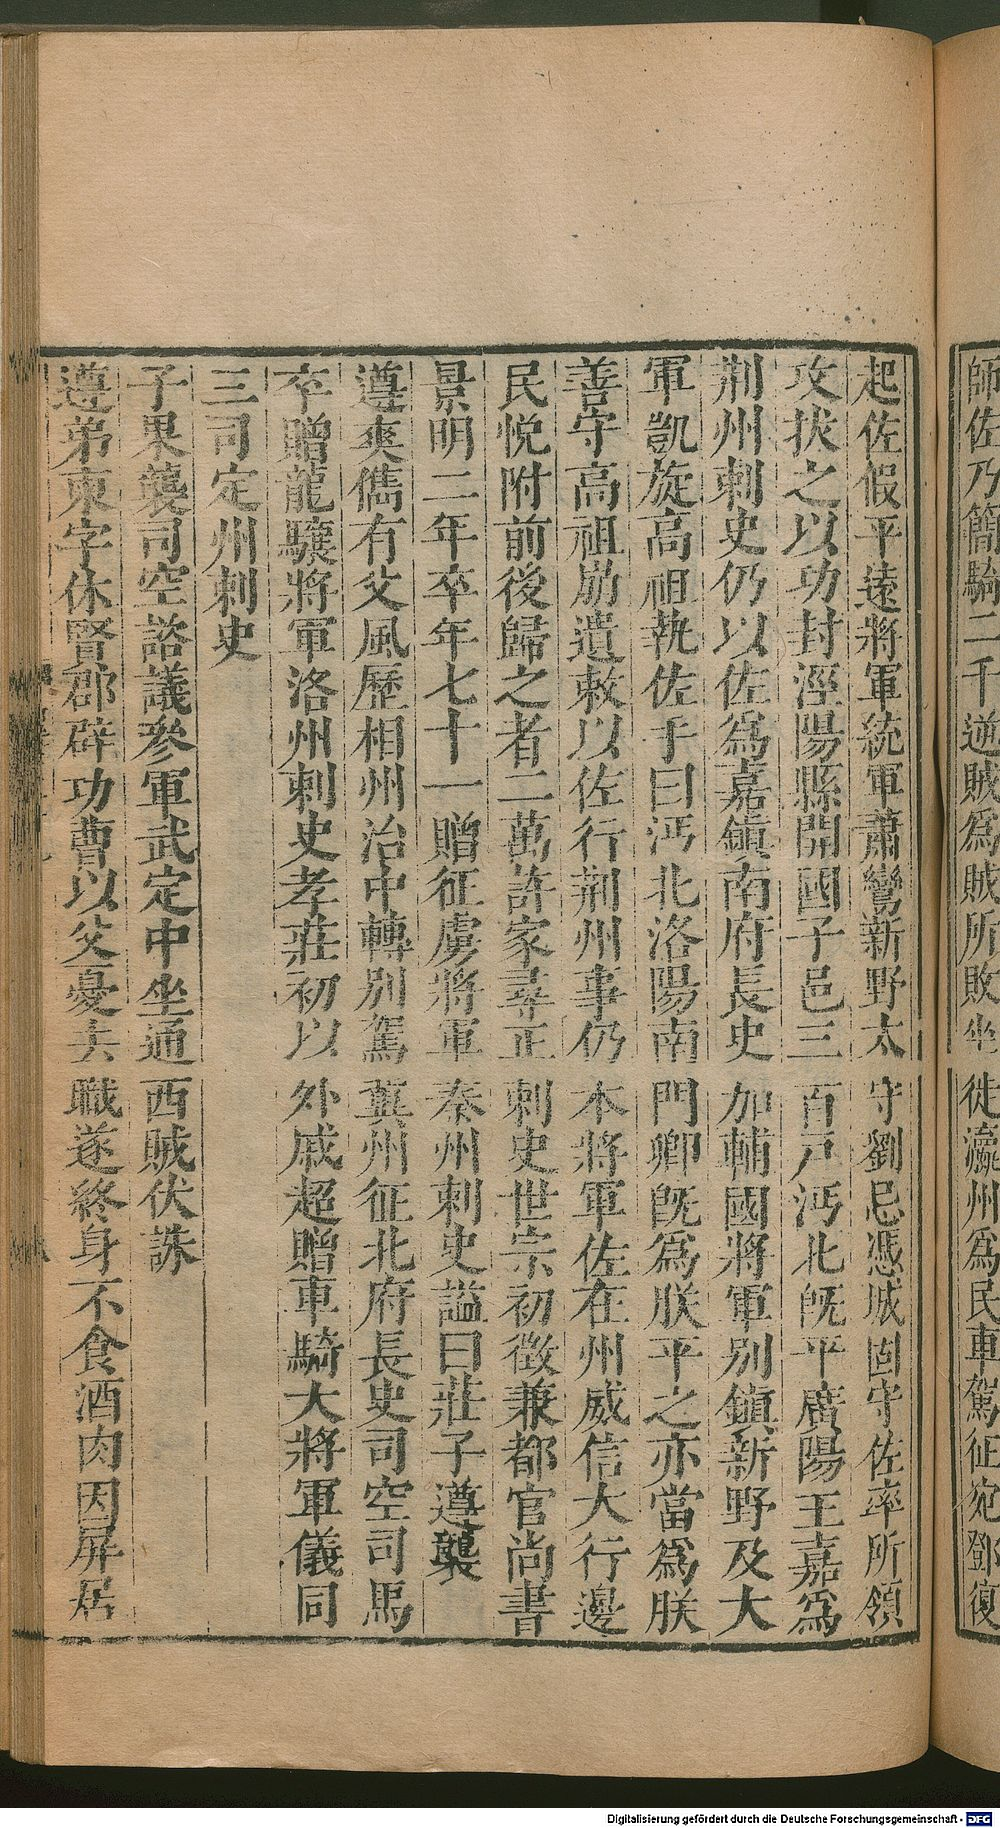 師佐乃簡騎二千逆賊爲賊所敗坐徙瀛州爲民車駕征宛鄧復
起佐假平遠將軍統軍蕭鸞新野太守劉忌憑城固守佐率所領
攻拔之以功封涇陽縣開國子邑三百戶沔北旣平廣陽王嘉爲
荆州刺史仍以佐爲嘉鎮南府長史加輔國將軍別鎮新野及大
軍凱旋高祖執佐手曰沔北洛陽南門卿旣爲朕平之亦當爲朕
善守高祖崩遺敕以佐行荆州事仍本將軍佐在州威信大行邊
民悅附前後歸之者二萬許家尋正刺史世宗初徵兼都官尚書
景明二年卒年七十一贈征虜將軍秦州刺史謚曰莊子遵襲
遵爽儁有父風歷相州治中轉別駕冀州征北府長史司空司馬
卒贈龍驤將軍洛州刺史孝莊初以外戚超贈車騎大將軍儀同
三司定州刺史
子果襲司空諮議參軍武定中坐通西賊伏誅
遵弟柬字休賢郡辟功曹以父憂去職遂終身不食酒肉因屏居
Digitalisierung gefördert durch die Deutsche Forschungsgemeinschaft - DFG